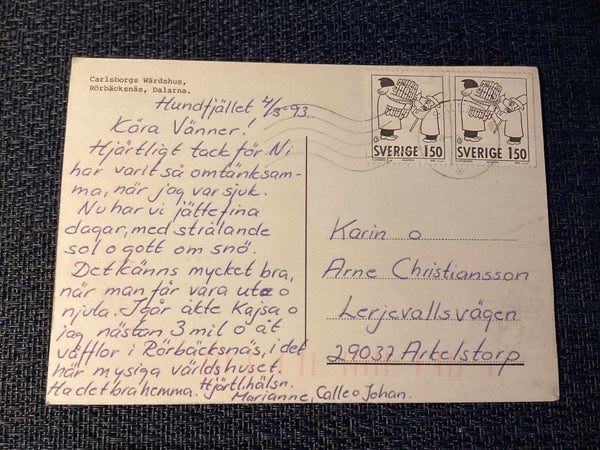 Carlsborgs Wärdshus,
Rörbäcksnäs, Dalarna.
Hundfjället 4/3-93
Kära Vänner!
Hjärtligt tack för Ni
har varit så omtänksam-
ma, när jag var sjuk.
Nu har vi jättefina
dagar, med strålande
sol o gott om snö.
Det känns mycket bra,
när man får vara ute o
njuta. Igår åkte Kajsa o
jag nästan 3 mil o åt
våfflor i Rörbäcksnäs, i det
här mysiga världshuset.
Ha det bra hemma. Hjärtl.hälsn.
Marianne, Calle o Johan.
SVERIGE 150
SVERIGE 150
Karin o
Arne Christiansson
Lerjevallsvägen
29037 Arkelstorp